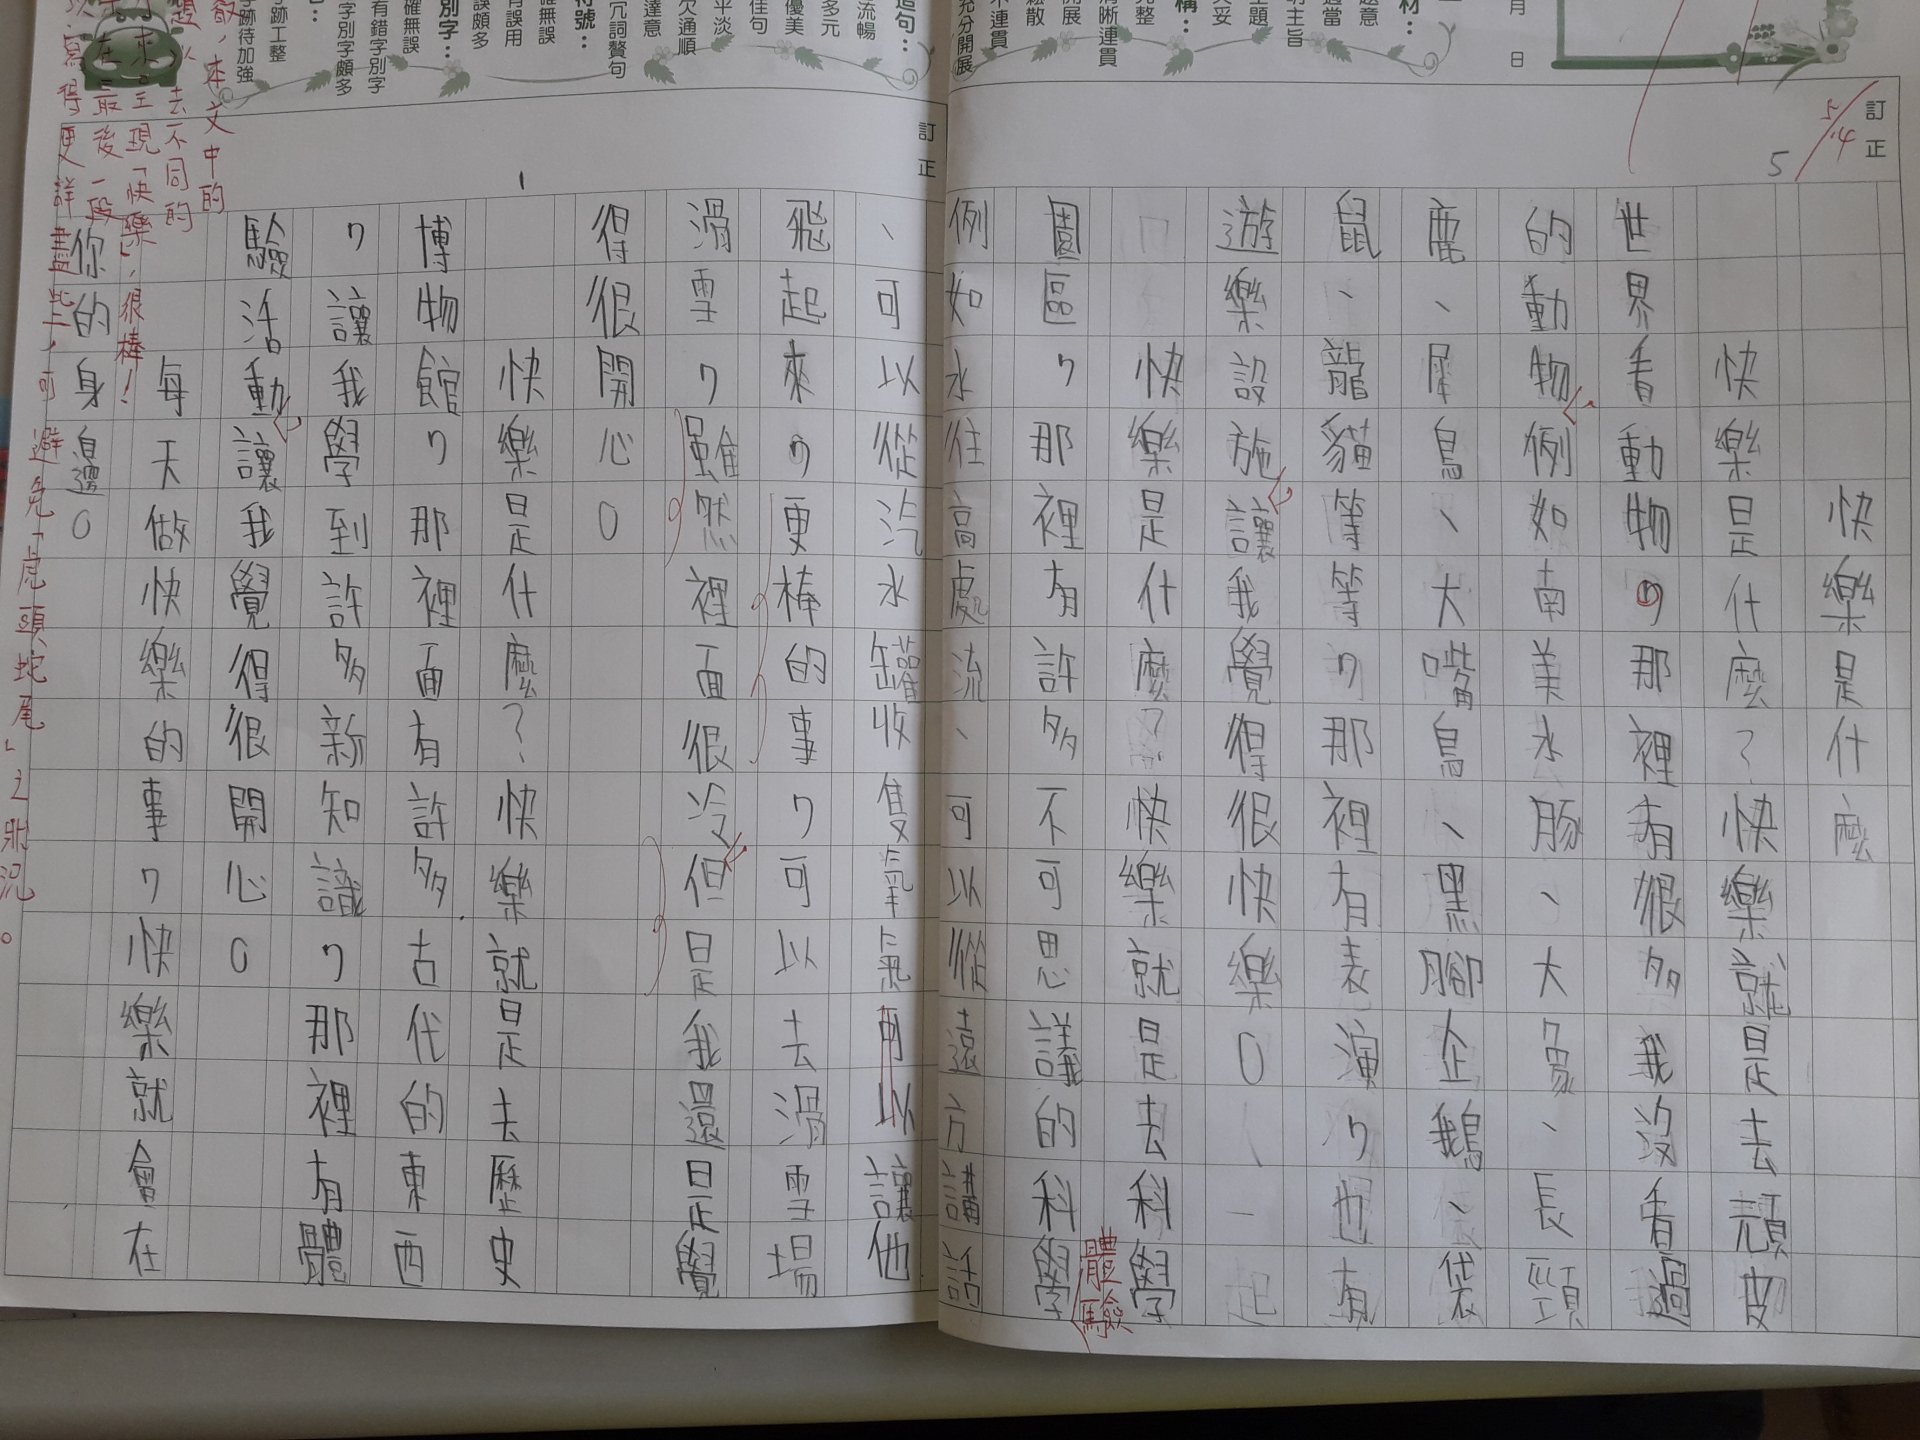 月 日
訂正
5/14
5
快樂是什麼
快樂是什麼？快樂就是去頑皮
世界看動物，那裡有很多我沒看過
的動物，例如南美水豚、大象、長頸
鹿、犀鳥、大嘴鳥、黑腳企鵝、袋
鼠、龍貓等等，那裡有表演，也有
遊樂設施，讓我覺得很快樂。
快樂是什麼？快樂就是去科學
體驗
園區，那裡有許多不可思議的科學
例如水往高處流、可以從遠方講話
、可以從汽水罐收隻氧氣再以讓他
飛起來，更棒的事，可以去滑雪場
滑雪，雖然裡面很冷，但是我還是覺
得很開心。
快樂是什麼？快樂就是去歷史
博物館，那裡面有許多古代的東西
，讓我學到許多新知識，那裡有體
驗活動，讓我覺得很開心。
每天做快樂的事，快樂就會在
你的身邊。
訂正
題意
適當
明主旨
主題
欠妥
完整
清晰連貫
開展
鬆散
不連貫
充分開展
造句：
流暢
多元
優美
佳句
平淡
欠通順
達意
冗詞贅句
符號：
確無誤
有誤用
誤頗多
別字：
確無誤
有錯字別字
字別字頗多
字跡工整
字跡待加強
，本文中的
去不同的
來呈現「快樂」，很棒！
在最後一段
寫得更詳盡些，可
避免「虎頭蛇尾」之狀況。